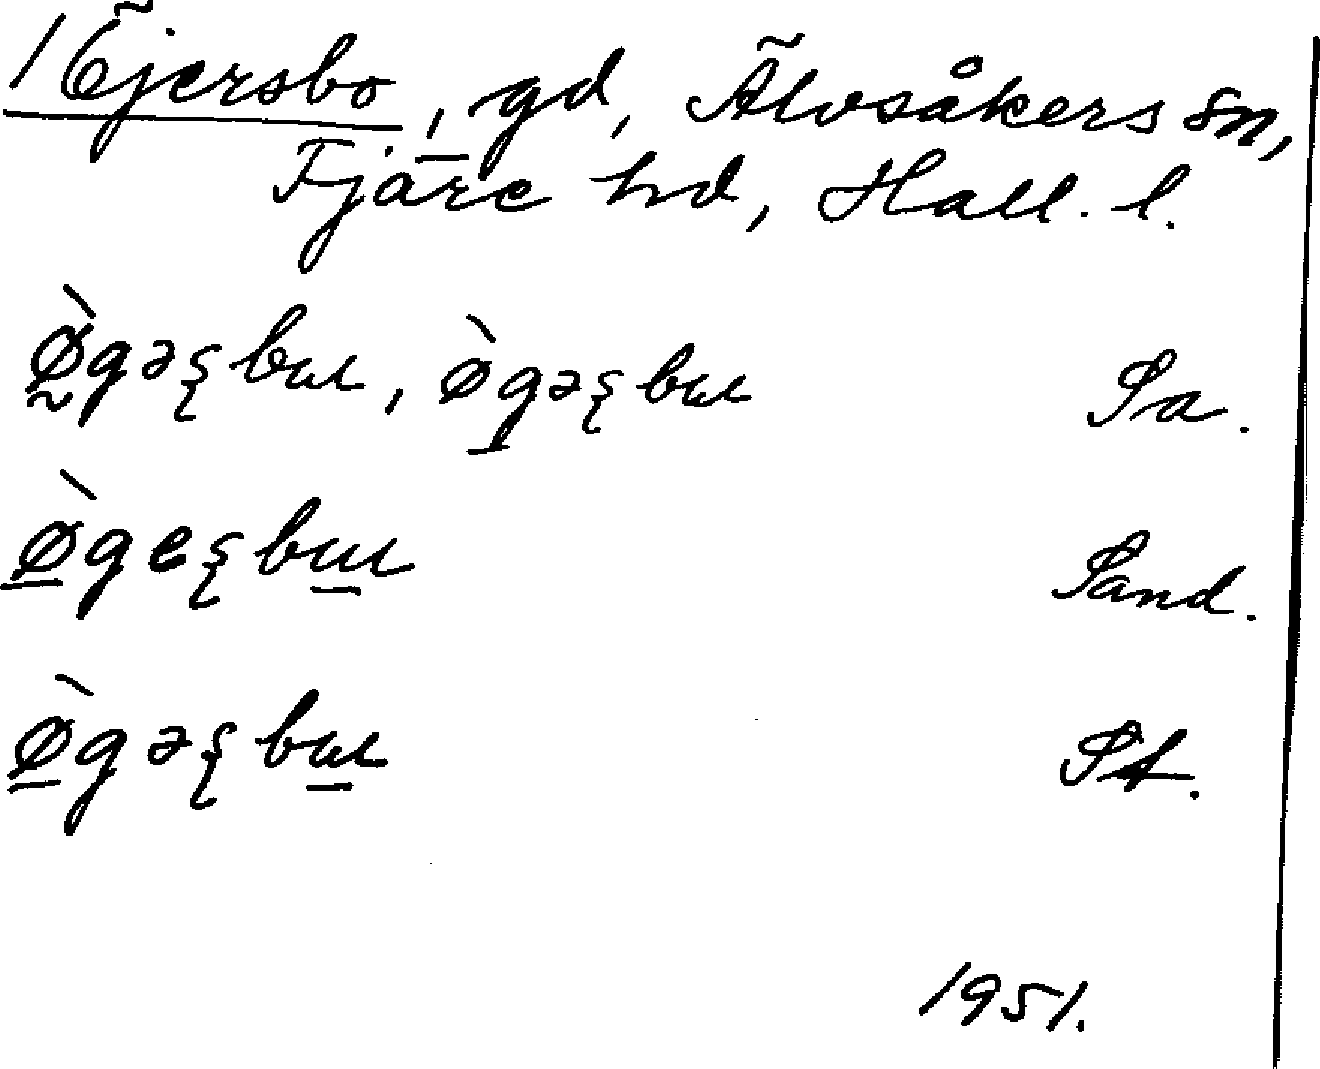 1 Öjersbo, gd, Älvsåkers sn,
Fjäre hd, Hall. l.
ø̀gəʂbɯ, ø̀gəʂbɯ Sa.
ø̀geʂbɯ Sand.
ø̀gəʂbɯ St.
1951.